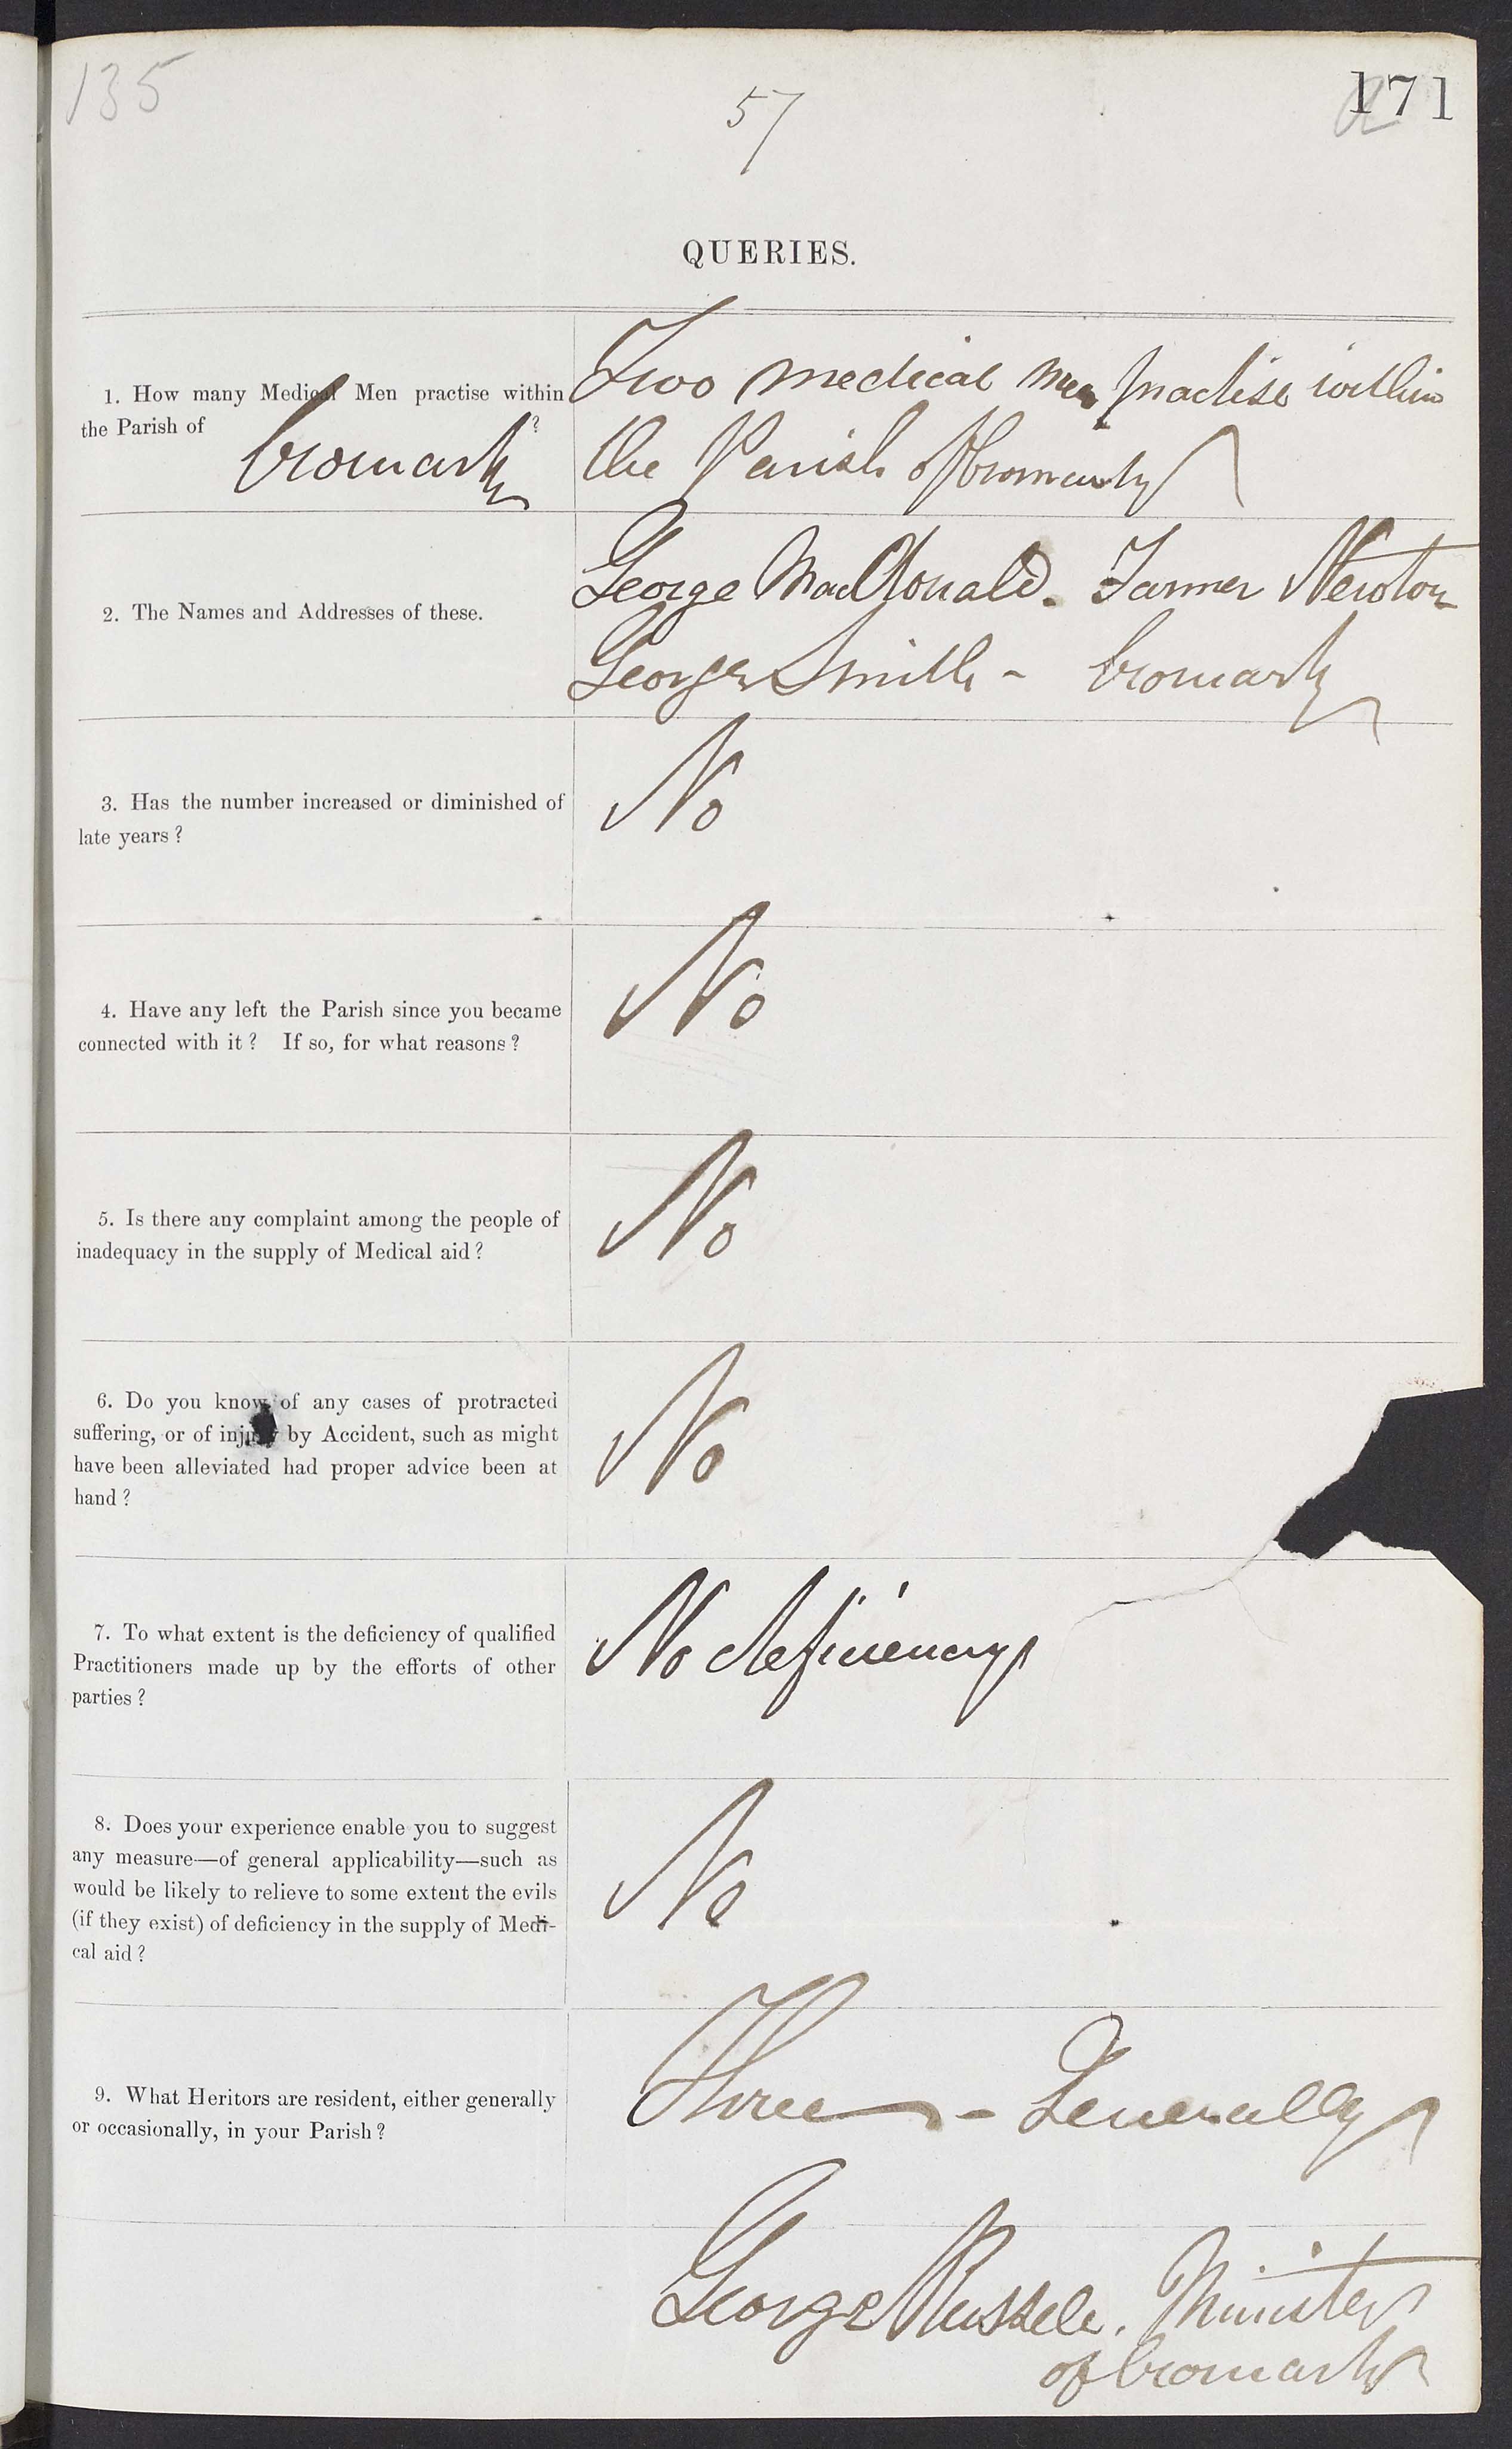 135
57
171
QUERIES.
1. How many Medical Men practise within
the Parish of Cromarty ?
Two medical men practise within
the Parish of Cromarty
2. The Names and Addresses of these.
George MacDonald. Farmer Newton
George Smith - Cromarty
3. Has the number increased or diminished of
late years ?
No
4. Have any left the Parish since you became
connected with it ? If so, for what reasons ?
No
5. Is there any complaint among the people of
inadequacy in the supply of Medical aid ?
No
6. Do you know of any cases of protracted
suffering, or of injury by Accident, such as might
have been alleviated had proper advice been at
hand ?
No
7. To what extent is the deficiency of qualified
Practitioners made up by the efforts of other
parties ?
No deficiency
8. Does your experience enable you to suggest
any measure—of general applicability—such as
would be likely to relieve to some extent the evils
(if they exist) of deficiency in the supply of Medi-
cal aid ?
No
9. What Heritors are resident, either generally
or occasionally, in your Parish ?
Three - Generally
George Russell. Minister
of Cromarty